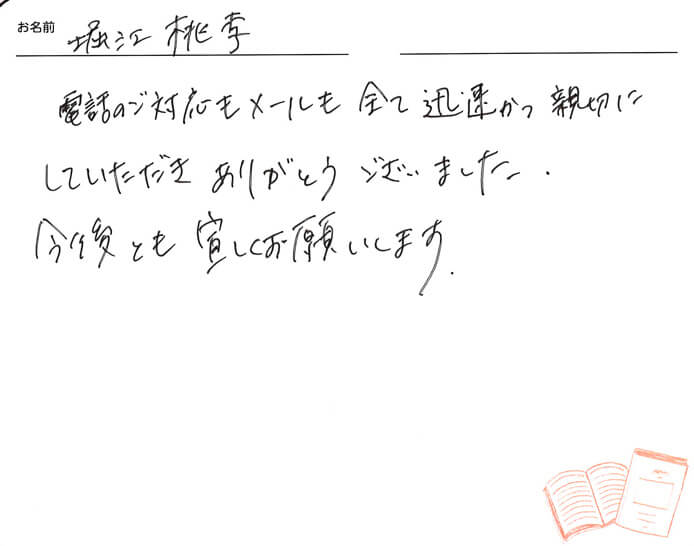 お名前 堀江 桃李
電話のご対応もメールも 全て 迅速かつ 親切に
していただき ありがとう ございました.
今後とも 宜しくお願いします.